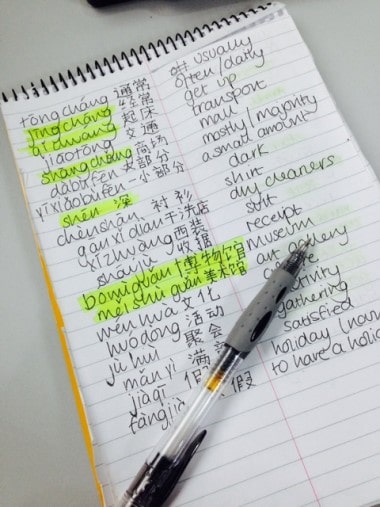 tōng cháng 通常 oft usually
jīng cháng 经常 often/daily
qǐ chuáng 起床 get up
jiāotōng 交通 transport
shāng chǎng 商场 mall
dàbùfen 大部分 mostly/majority
yī xiǎobùfen 一小部分 a small amount
shēn 深 dark
chènshān 衬衫 shirt
gānxǐdiàn 干洗店 dry cleaners
xīzhuāng 西装 suit
shōujù 收据 receipt
bówùguǎn 博物馆 museum
měi shù guǎn 美术馆 art gallery
wén huà 文化
huódòng 活动
jù huì 聚会 gathering
mǎnyì 满 satisfied
jiàqī 假 holiday/
fàngjià 假 to have a